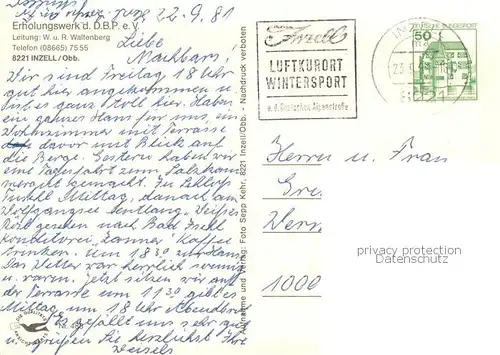 22.9.81
Erholungswerk d. D.B.P. e.V.
Leitung: W. u. R. Waltenberg
Telefon (08665) 7555
8221 INZELL/Obb.
Liebe
Nachbarn!
Wir sind Freitag 18 Uhr
gut hier angekommen u.
ist es ganz toll hier. Haben
ein ganzes Haus für uns, ein
Wohnzimmer mit Terrasse
davor mit Blick auf
die Berge. Gestern haben wir
eine Tagesfahrt zum Salzkam
mergut gemacht. Zu Schloss
Fuschl Mittag, danach am
Wolfgangsee entlang "Weißes
Rößl gesehen nach Bad Ischl
Konditorei "Zauner" Kaffee
trinken. Um 18 30
Das Wetter war herrlich sonnig
u. warm. Jetzt sitzen wir auf
der Terrasse um 11 30 gibt es
Mittag um 18 Uhr Abendbrot
Es gefällt uns sehr gut
u. grüßen Sie herzlichst Ihre
Aufnahme und Verlag: Foto Sepp Kehr, 8221 Inzell/Obb. - Nachdruck verboten
Inzell
LUFTKURORT
WINTERSPORT
a. d. Deutschen Alpenstraße
8221
DEUTSCHE BUNDESPOST
50
Herrn u. Frau
1000
privacy protection
Datenschutz